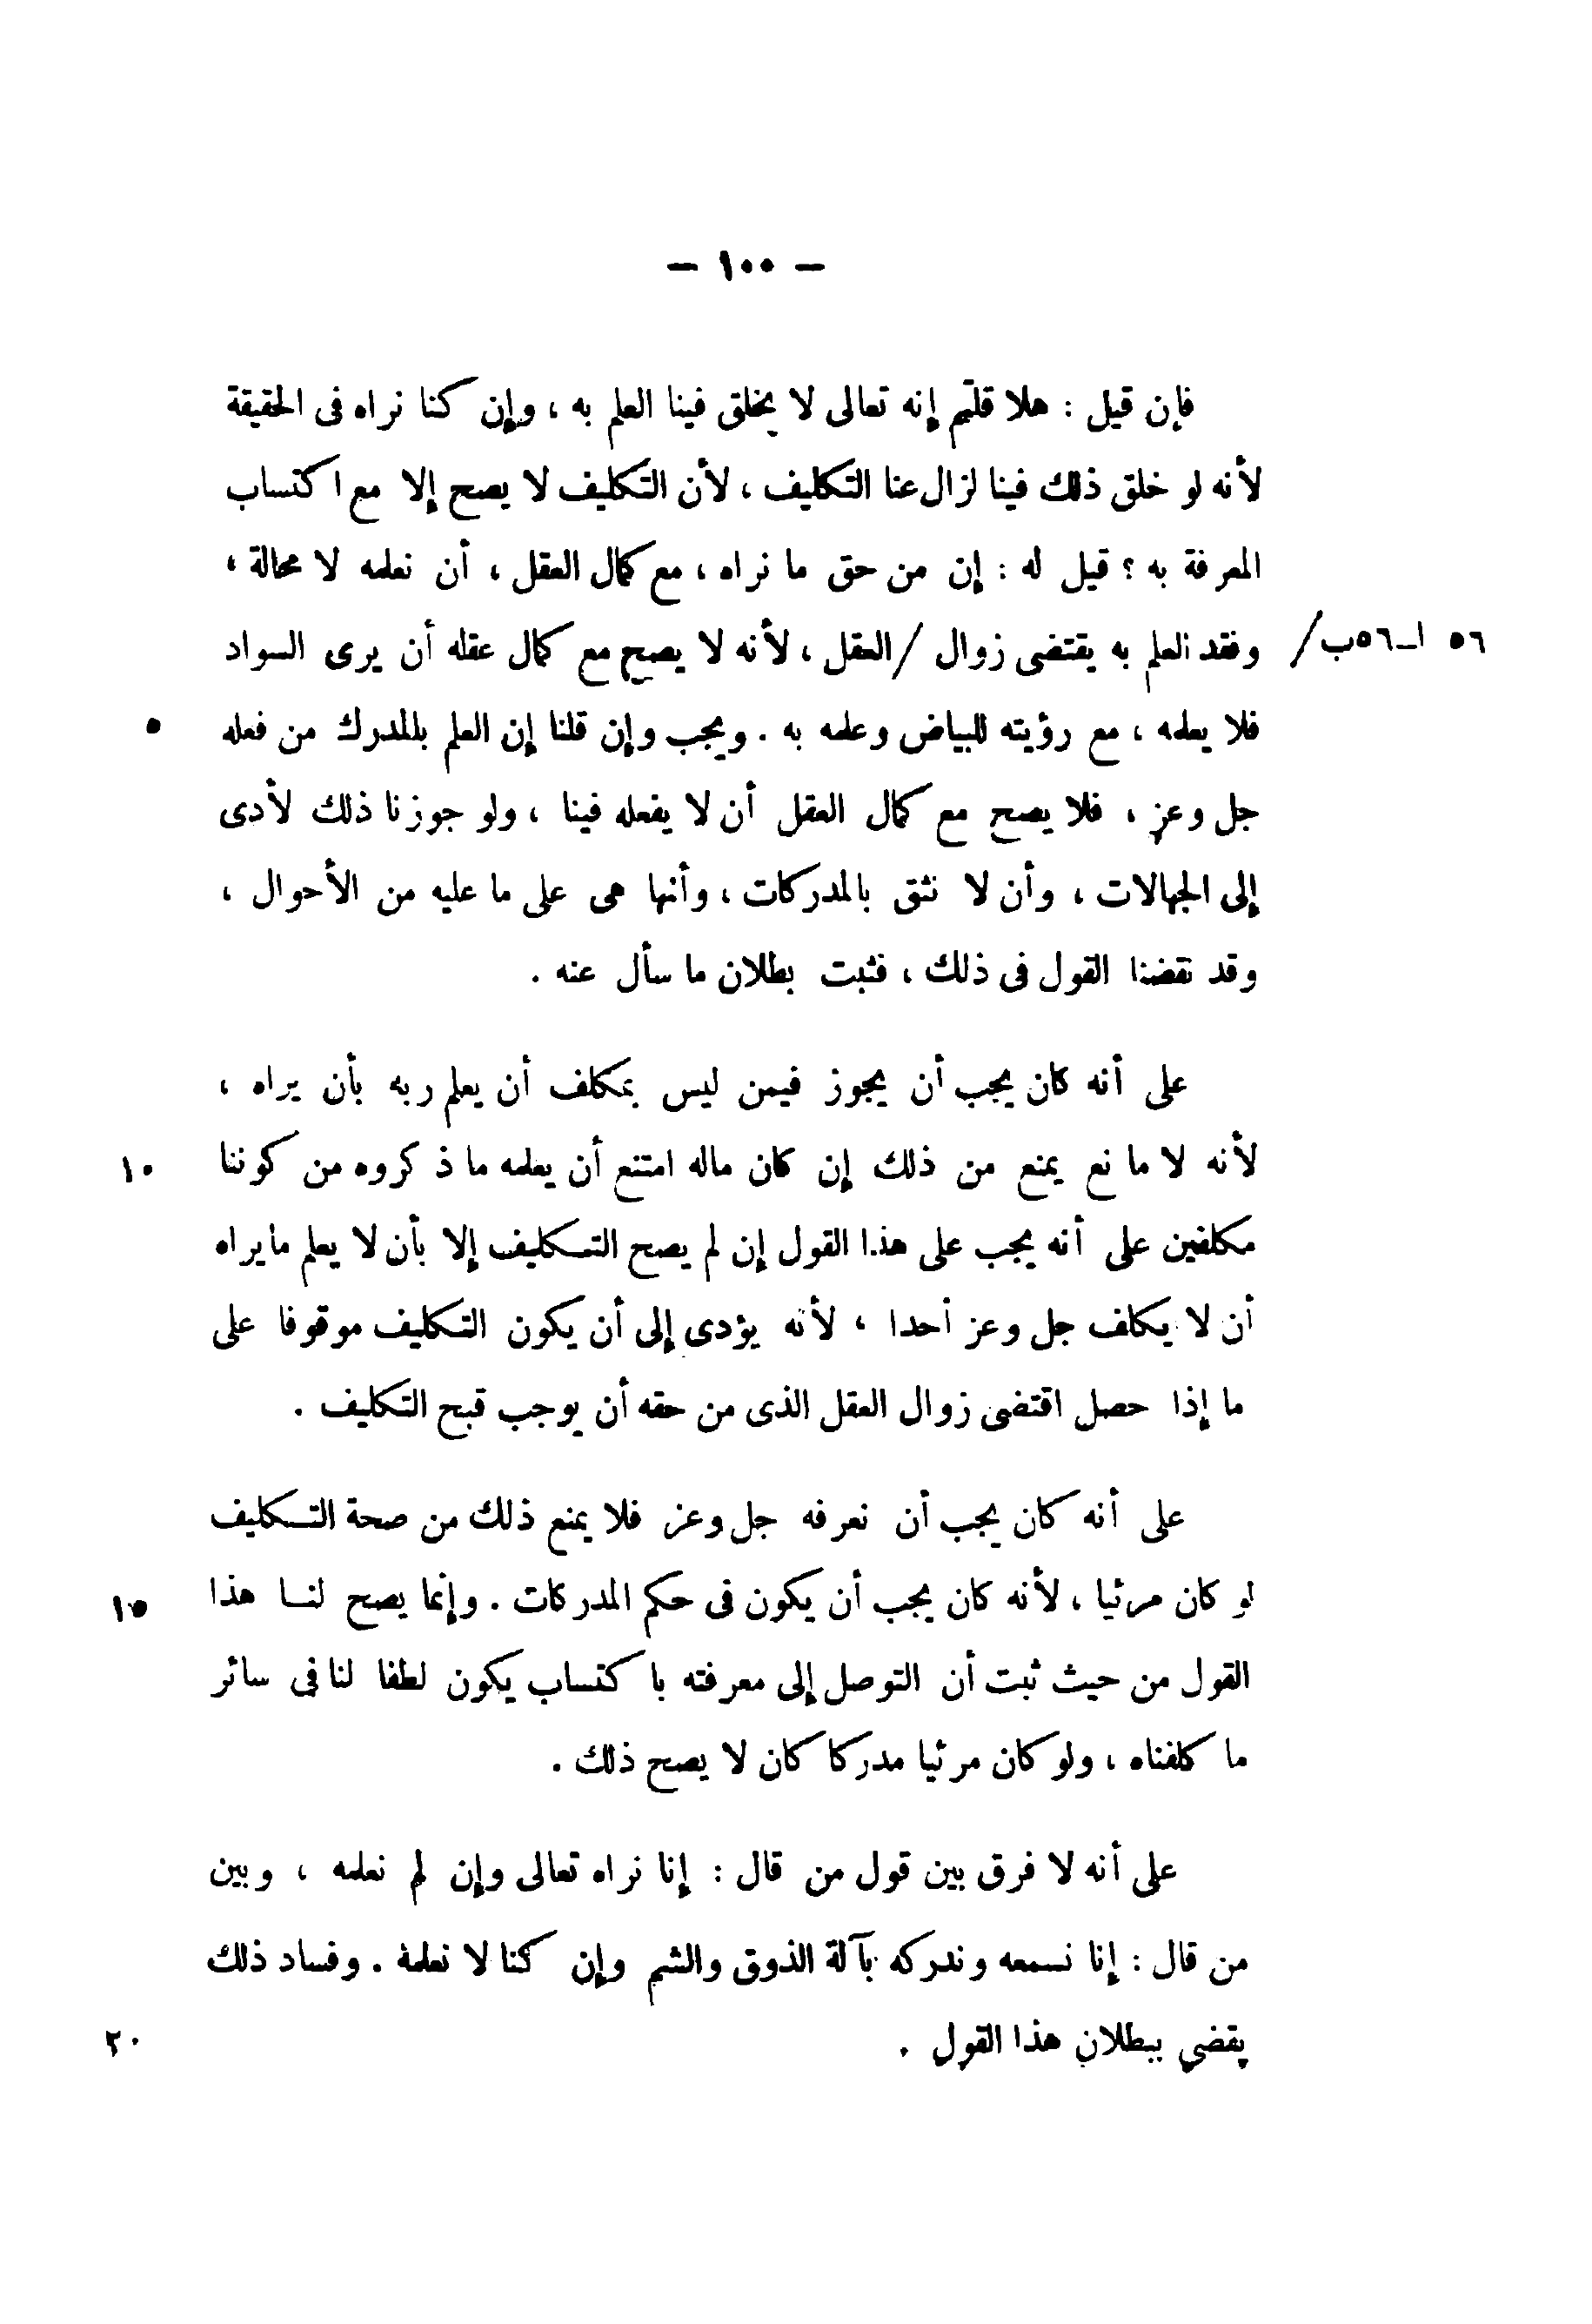 — ١٠٠ —
فإن قيل : هلا قلتم إنه تعالى لا يخلق فينا العلم به ، وإن كنا نراه فى الحقيقة
لأنه لو خلق ذلك فينا لزال عنا التكليف ، لأن التكليف لا يصح إلا مع اكتساب
المعرفة به ؟ قيل له : إن من حق ما نراه ، مع كمال العقل ، أن نعلمه لا محالة ،
وفقد العلم به يقتضى زوال /العقل ، لأنه لا يصح مع كمال عقله أن يرى السواد
٥٦ ا_٥٦ب/
فلا يعلمه ، مع رؤيته للبياض وعلمه به . ويجب وإن قلنا إن العلم بالمدرك من فعله
٥
جل وعز ، فلا يصح مع كمال العقل أن لا يفعله فينا ، ولو جوزنا ذلك لأدى
إلى الجهالات ، وأن لا نثق بالمدركات ، وأنها هى على ما عليه من الأحوال ،
وقد نقضنا القول فى ذلك ، فثبت بطلان ما سأل عنه .
على أنه كان يجب أن يجوز فيمن ليس بمكلف أن يعلم ربه بأن يراه ،
لأنه لا مانع يمنع من ذلك إن كان ماله امتنع أن يعلمه ما ذكروه من كوننا
١٠
مكلفين على أنه يجب على هذا القول إن لم يصح التكليف إلا بأن لا يعلم مايراه
أن لا يكلف جل وعز أحدا ، لأنه يؤدى إلى أن يكون التكليف موقوفا على
ما إذا حصل اقتضى زوال العقل الذى من حقه أن يوجب قبح التكليف .
على أنه كان يجب أن نعرفه جل وعز فلا يمنع ذلك من صحة التكليف
لو كان مرئيا ، لأنه كان يجب أن يكون فى حكم المدركات . وإنما يصح لنا هذا
١٥
القول من حيث ثبت أن التوصل إلى معرفته باكتساب يكون لطفا لنا فى سائر
ما كلفناه ، ولو كان مرئيا مدركا كان لا يصح ذلك .
على أنه لا فرق بين قول من قال : إنا نراه تعالى وإن لم نعلمه ، وبين
من قال : إنا نسمعه وندركه بآلة الذوق والشم وإن كنا لا نعلمة . وفساد ذلك
يقضي ببطلان هذا القول .
٢٠